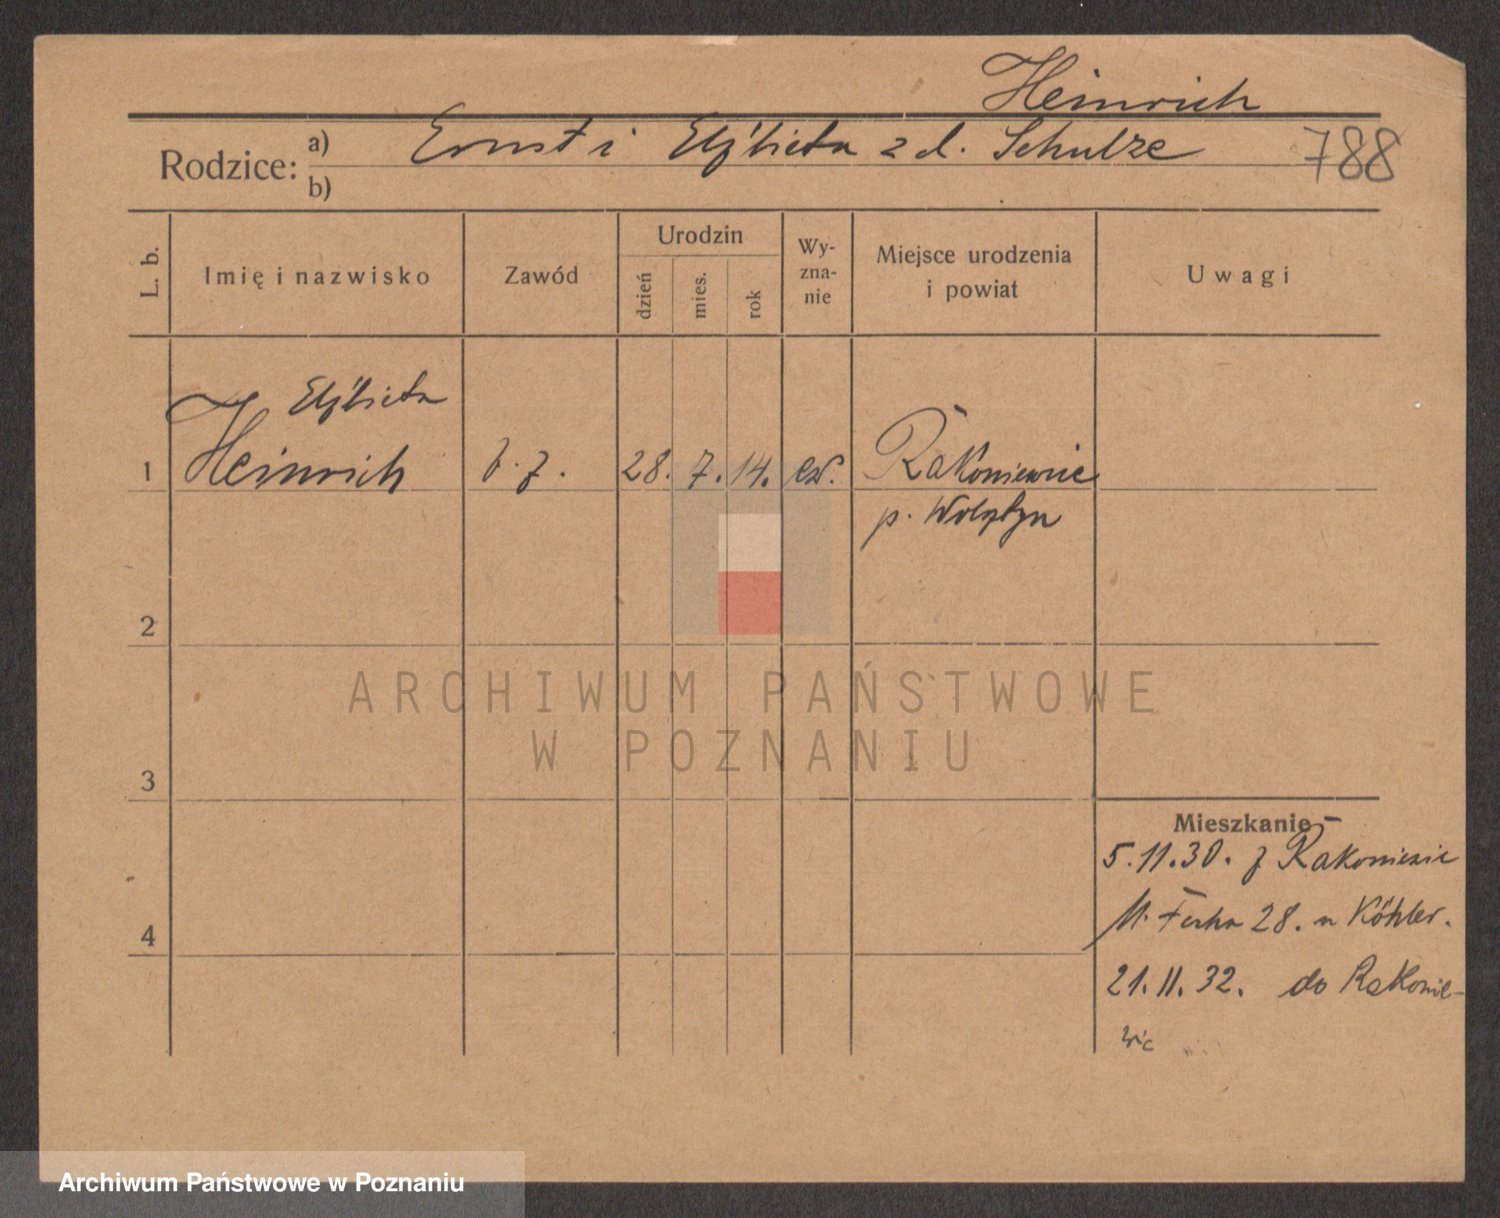 Heinrich
Rodzice: a) Ernst i Elżbieta z d. Schulze 788
b)
L. b.
Imię i nazwisko
Zawód
Urodzin
dzień
mies.
rok
Wy-
zna-
nie
Miejsce urodzenia
i powiat
Uwagi
Elżbieta
1 Heinrich b. z. 28. 7. 14. ew. Rakoniewice
p. Wolsztyn
2
3
4
Mieszkanie
5.11.30. z Rakoniewic
M. Focha 28. u Köhler.
21.11.32. do Rakonie-
wic
ARCHIWUM PAŃSTWOWE
W POZNANIU
Archiwum Państwowe w Poznaniu